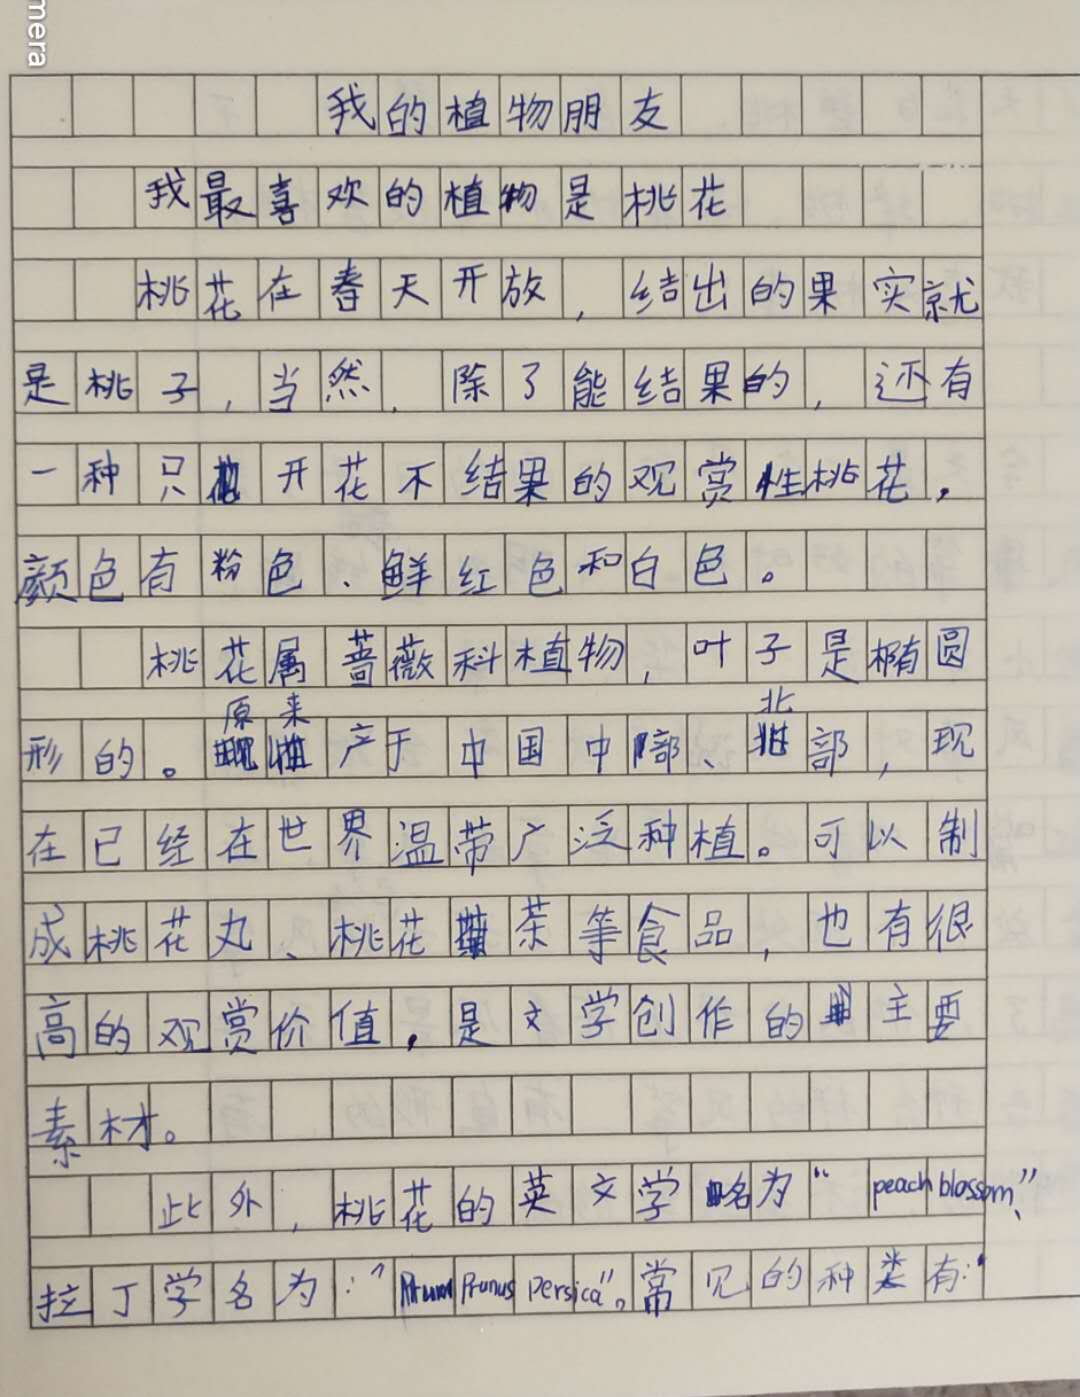 mera
我的植物朋友
我最喜欢的植物是桃花
桃花在春天开放，结出的果实就
是桃子，当然，除了能结果的，还有
一种只开花不结果的观赏性桃花，
颜色有粉色、鲜红色和白色。
桃花属蔷薇科植物，叶子是椭圆
形的。原来产于中国中部、北部，现
在已经在世界温带广泛种植。可以制
成桃花丸、桃花茶等食品，也有很
高的观赏价值，是文学创作的主要
素材。
此外，桃花的英文学名为“peach blossom”、
拉丁学名为：“Prunus Persica”。常见的种类有：